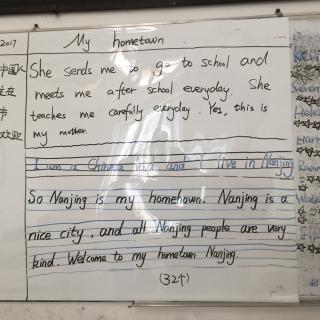 2017
My hometown
She sends me to go to school and
meets me after school everyday. She
teaches me carefully everyday. Yes, this is
my mother.
I am a Chinese kid, and I live in Nanjing
So Nanjing is my homehown. Nanjing is a
nice city, and all Nanjing people are very
kind. Welcome to my hometown Nanjing.
(32个)
中国人
市